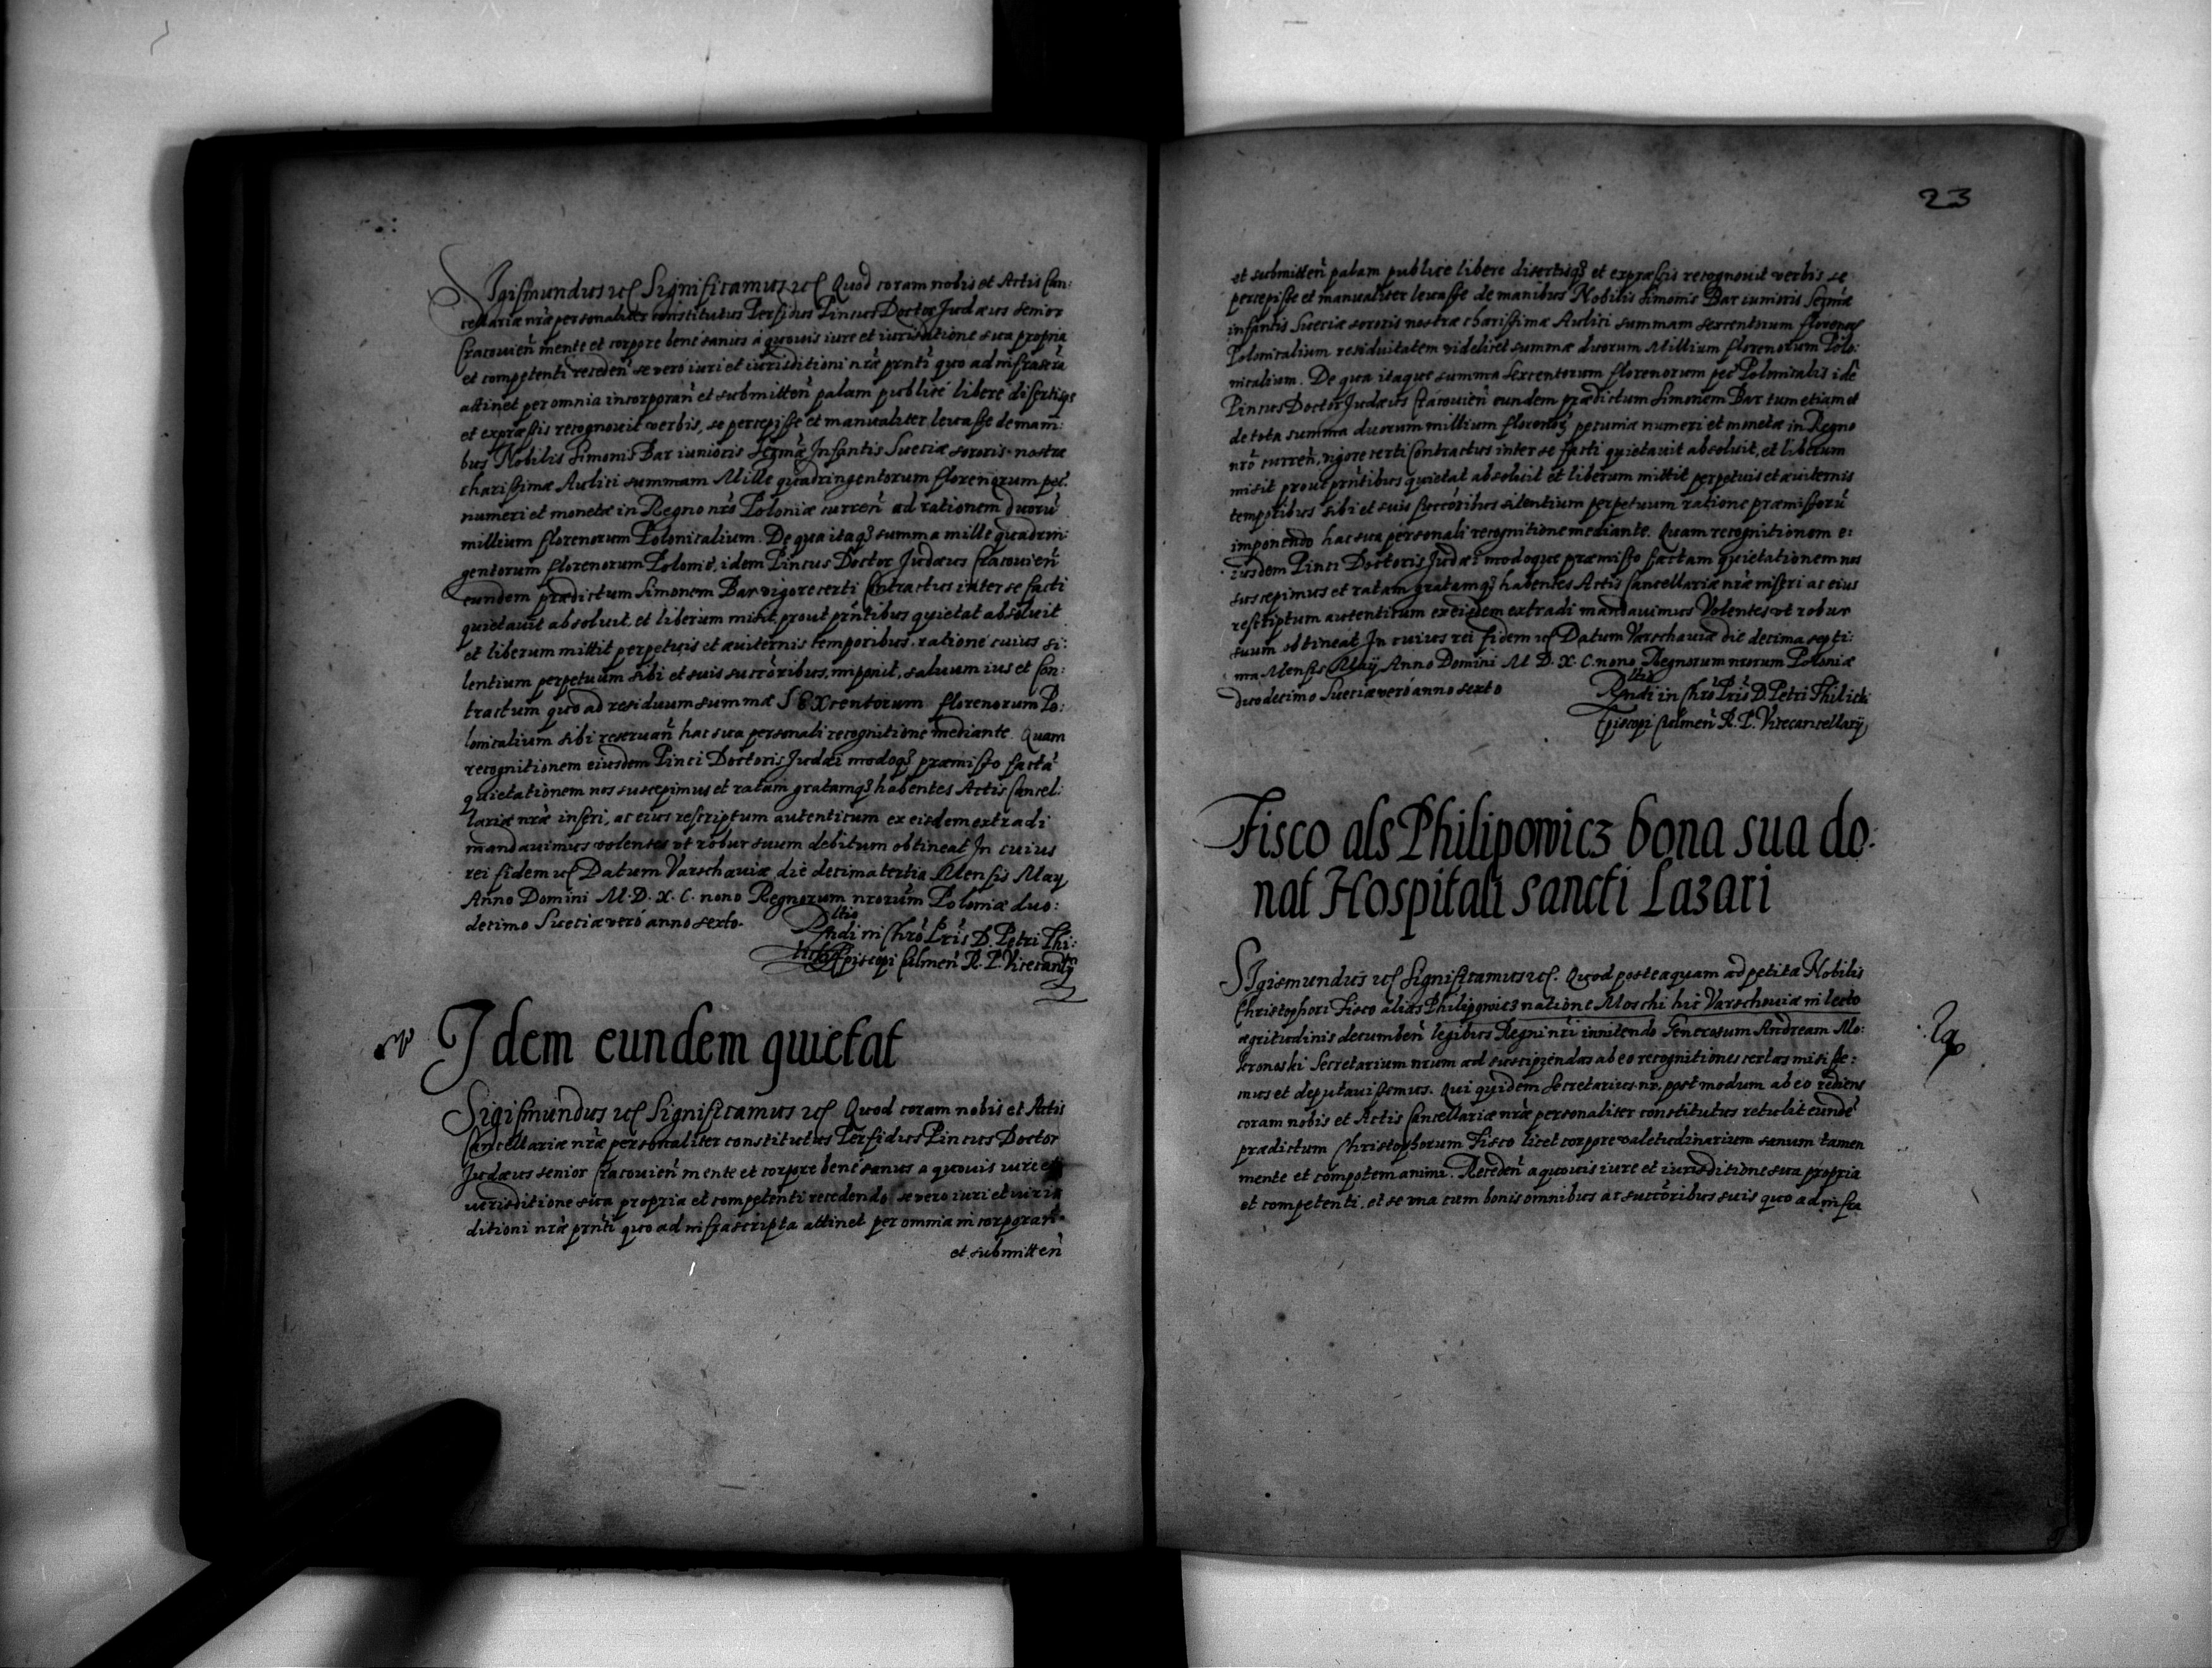 Sigismundus etc Significamus etc Quod coram nobis et Actis Can:
cellariæ nr̃æ personaliter constitutus Perfidus Pincus Doctor Judæus senior
Cracovieñ mente et corpore bené sanus á quovis iure et iurisditione sua propria
et competenti recedeñ se vero iuri et iurisditioni nr̃æ prñti quo ad infrascra
attinet per omnia incorporañ et submitteñ palam publicé liberé disertisq3
et expræssis recognovit verbis, se percepisse et manualiter levasse de mani:
bus Nobilis Simonis Bar iunioris Sermæ Infantis Sueciæ sororis nostræ
charissimæ Aulici summam Mille quadringentorum florenorum pec.
numeri et monetæ in Regno nr̃o Poloniæ curreñ ad rationem duorũ
millium florenorum Polonicalium. De qua itaq3 summa mille quadrin:
gentorum florenorum Polonic̃, idem Pincus Doctor Judæus Cracovieñ
eundem prædictum Simonem Bar vigore certi Contractus inter se facti
quietavit absolvit, et liberum misit, prout prñtibus quietat absolvit
et liberum mittit perpetuis et æviternis temporibus. ratione cuius si:
lentium perpetuum sibi et suis succ̃oribus, imponit, salvum ius et Con:
tractum quo ad residuum summæ SEXcentorum florenorum Po:
lonicalium sibi reservañ hac sua personali recognitione mediante. Quam
recognitionem eiusdem Pinci Doctoris Judæi modoq3 præmisso factã
quietationem nos suscepimus et ratam gratamq3 habentes Actis Cancel:
lariæ nr̃æ inseri, ac eius rescriptum autenticum ex eisdem extradi
mandavimus volentes vt robur suum debitum obtineat In cuius
rei fidem etc Datum Varschaviæ die decima tertia Mensis May
Anno Domini M.D.X.C. nono Regnorum nrorũm Poloniæ duo:
decimo Sueciæ veró anno sexto.
Rltio
Rndi in Chrõ Pr̃is D. Petri Thi:
licki Episcopi Culmeñ R.P. Vicecanrij
Idem eundem quietat
Sigismundus etc Significamus etc Quod coram nobis et Actis
Cancellariæ nr̃æ personaliter constitutus Perfidus Pincus Doctor
Judæus senior Cracovieñ mente et corpore bené sanus a quovis iure et
iurisditione sua propria et competenti recedendo, se vero iuri et iuris
ditioni nr̃æ prñti quo ad infrascripta attinet per omnia incorporañ
et submitteñ
23
et submitteñ palam publice libere disertisq3 et expræssis recognovit verbis se
percepisse et manualiter levasse de manibus Nobilis Simonis Bar iunioris Sermæ
infantis Sueciæ sororis nostræ charissimæ Aulici summam sexcentorum florenor
Polonicalium residuitatem videlicet summæ duorum Millium florenorum Polo:
nicalium. De qua itaque summa sexcentorum florenorum pec̃ Polonicalis idẽ
Pincus Doctor Judæus Cracovieñ eundem prædictum Simonem Bar tum etiam et
de tota summa duorum millium florenor3 pecuniæ numeri et monetæ in Regno
nrõ curreñ, vigore certi Contractus inter se facti quietavit absolvit, et liberum
misit prout prñtibus quietat absolvit et liberum mittit perpetuis et æviternis
temporibus sibi et suis succ̃oribus silentium perpetuum ratione præmissorũ
imponendo hac sua personali recognitione mediante. Quam recognitionem e:
iusdem Pinci Doctoris Judæi modoque præmisso factam quietationem nos
suscepimus et ratam gratamq3 habentes Actis Cancellariæ nr̃æ inseri ac eius
rescriptum autenticum ex eisdem extradi mandavimus Volentes vt robur
suum obtineat In cuius rei fidem etc Datum Varschaviæ die decima septi:
ma Mensis Maij Anno Domini M D. X. C. nono Regnorum nrorum Poloniæ
duodecimo Sueciæ veró anno sexto
Rltio
Rndi in Chrõ Pr̃is D. Petri Thilicki
Episcopi Culmeñ R.P. Vicecancellarij
Fisco als Philipowicz bona sua do:
nat Hospitali sancti Lazari
Sigismundus etc Significamus etc. Quod posteaquam ad petita Nobilis
Christophori Fisco alias Philipowicz natione Moschi hic Varschaviæ in lecto
ægritudinis decumbeñ legibus Regni nr̃i innitendo Generosum Andream Mo:
kronoski Secretarium nrum ad suscipiendas ab eo recognitiones certas misisse:
mus et deputavissemus. Qui quidem Secretarius nr. postmodum ab eo rediens
coram nobis et Actis Cancellariæ nr̃æ personaliter constitutus retulit eundẽ
prædictum Christophorum Fisco licet corpore valetudinarium sanum tamen
mente et compotem animi. Recedeñ a quovis iure et iurisditione sua propria
et competenti, et se vna cum bonis omnibus ac succ̃oribus suis quo ad infra